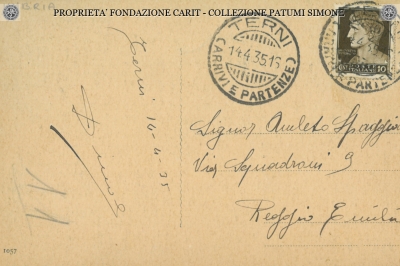 PROPRIETA' FONDAZIONE CARIT - COLLEZIONE PATUMI SIMONE
TERNI
14.4.35.16
(ARRIVI E PARTENZE)
10
Terni 14-4-35
Signor Amleto Spaggiari
Via Squadroni 9
Reggio Emilia
11
1057